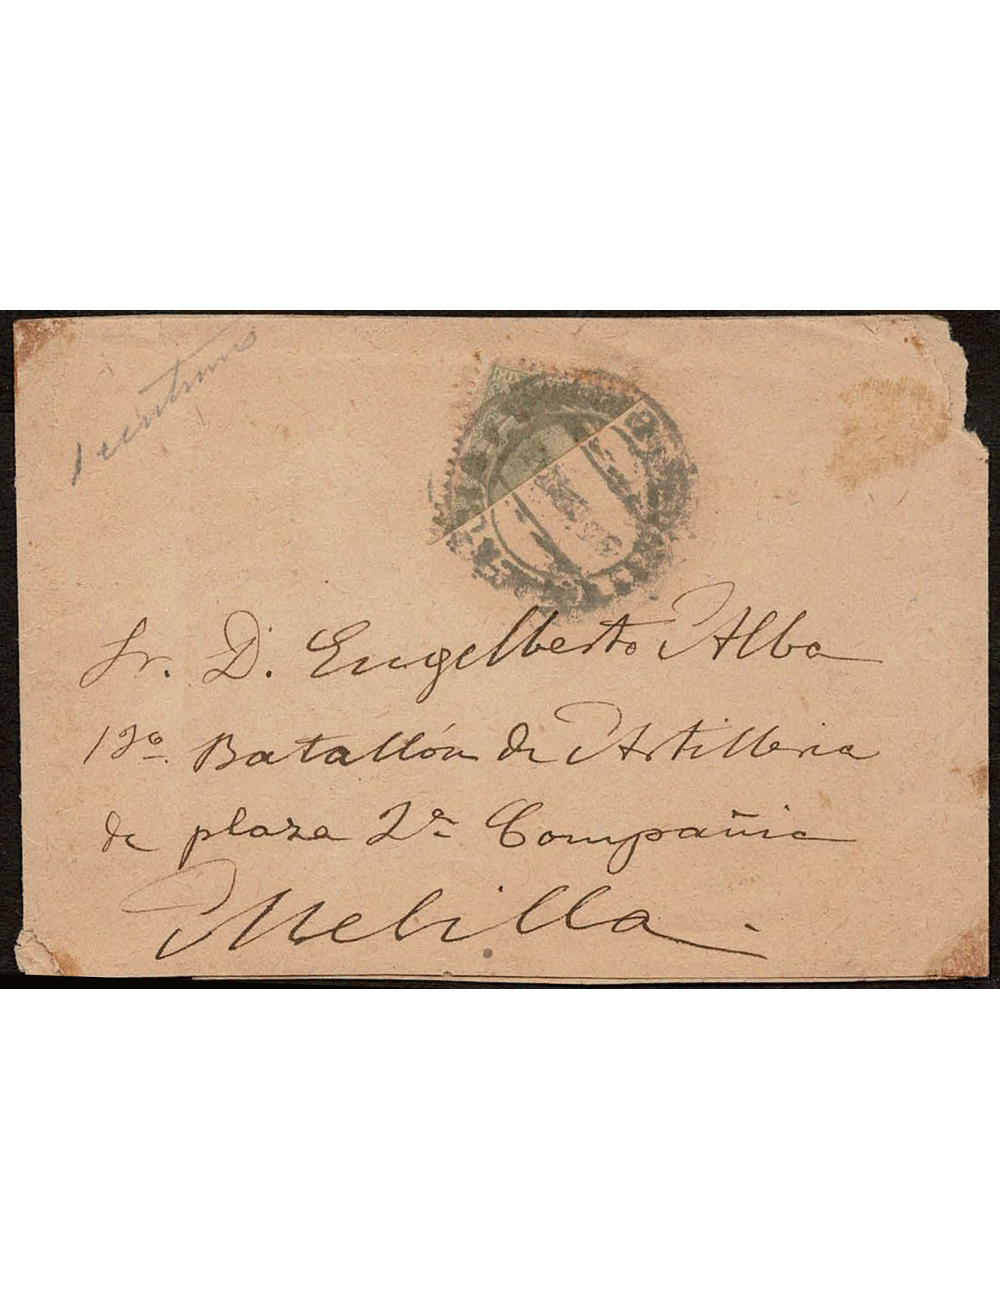 1 céntimo
Sr. D. Engelberto Alba
12º Batallón de Artilleria
de plaza 2ª Compañia
Melilla.